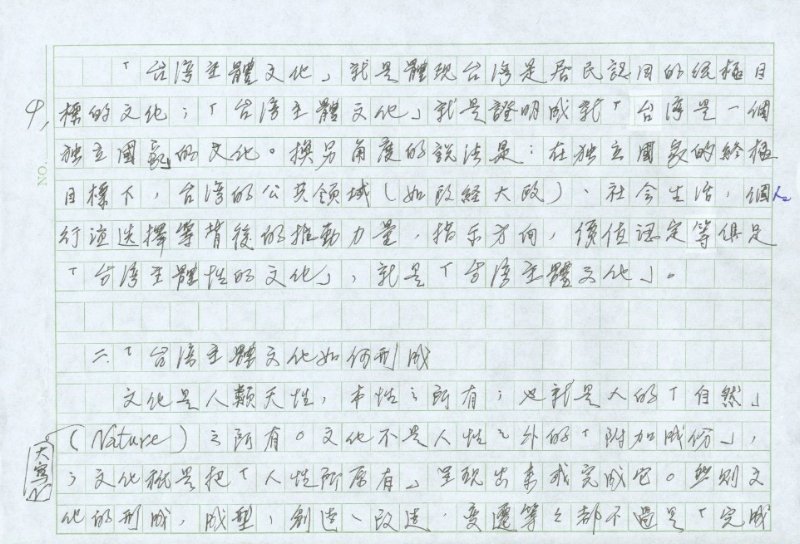 「台湾主體文化」就是體現台湾是居民認同的終極目
標的文化；「台湾主體文化」就是證明成就「台湾是一個
獨立國家」的文化。換另角度的說法是：在獨立國家的終極
目標下，台湾的公共領域（如政經大政）、社會生活，個人
行誼选擇等背後的推動力量，指示方向，價值認定等俱是
「台湾主體性的文化」，就是「台湾主體文化」。
二、「台湾主體文化如何形成
文化是人類天性，本性之所有；也就是人的「自然」
（Nature）之所有。文化不是人性之外的「附加成份」，
文化就是把「人性所原有」呈現出來或完成它。然則文
化的形成，成型，創造、改造，变遷等等都不過是「完成
4,
NO.
大寫N